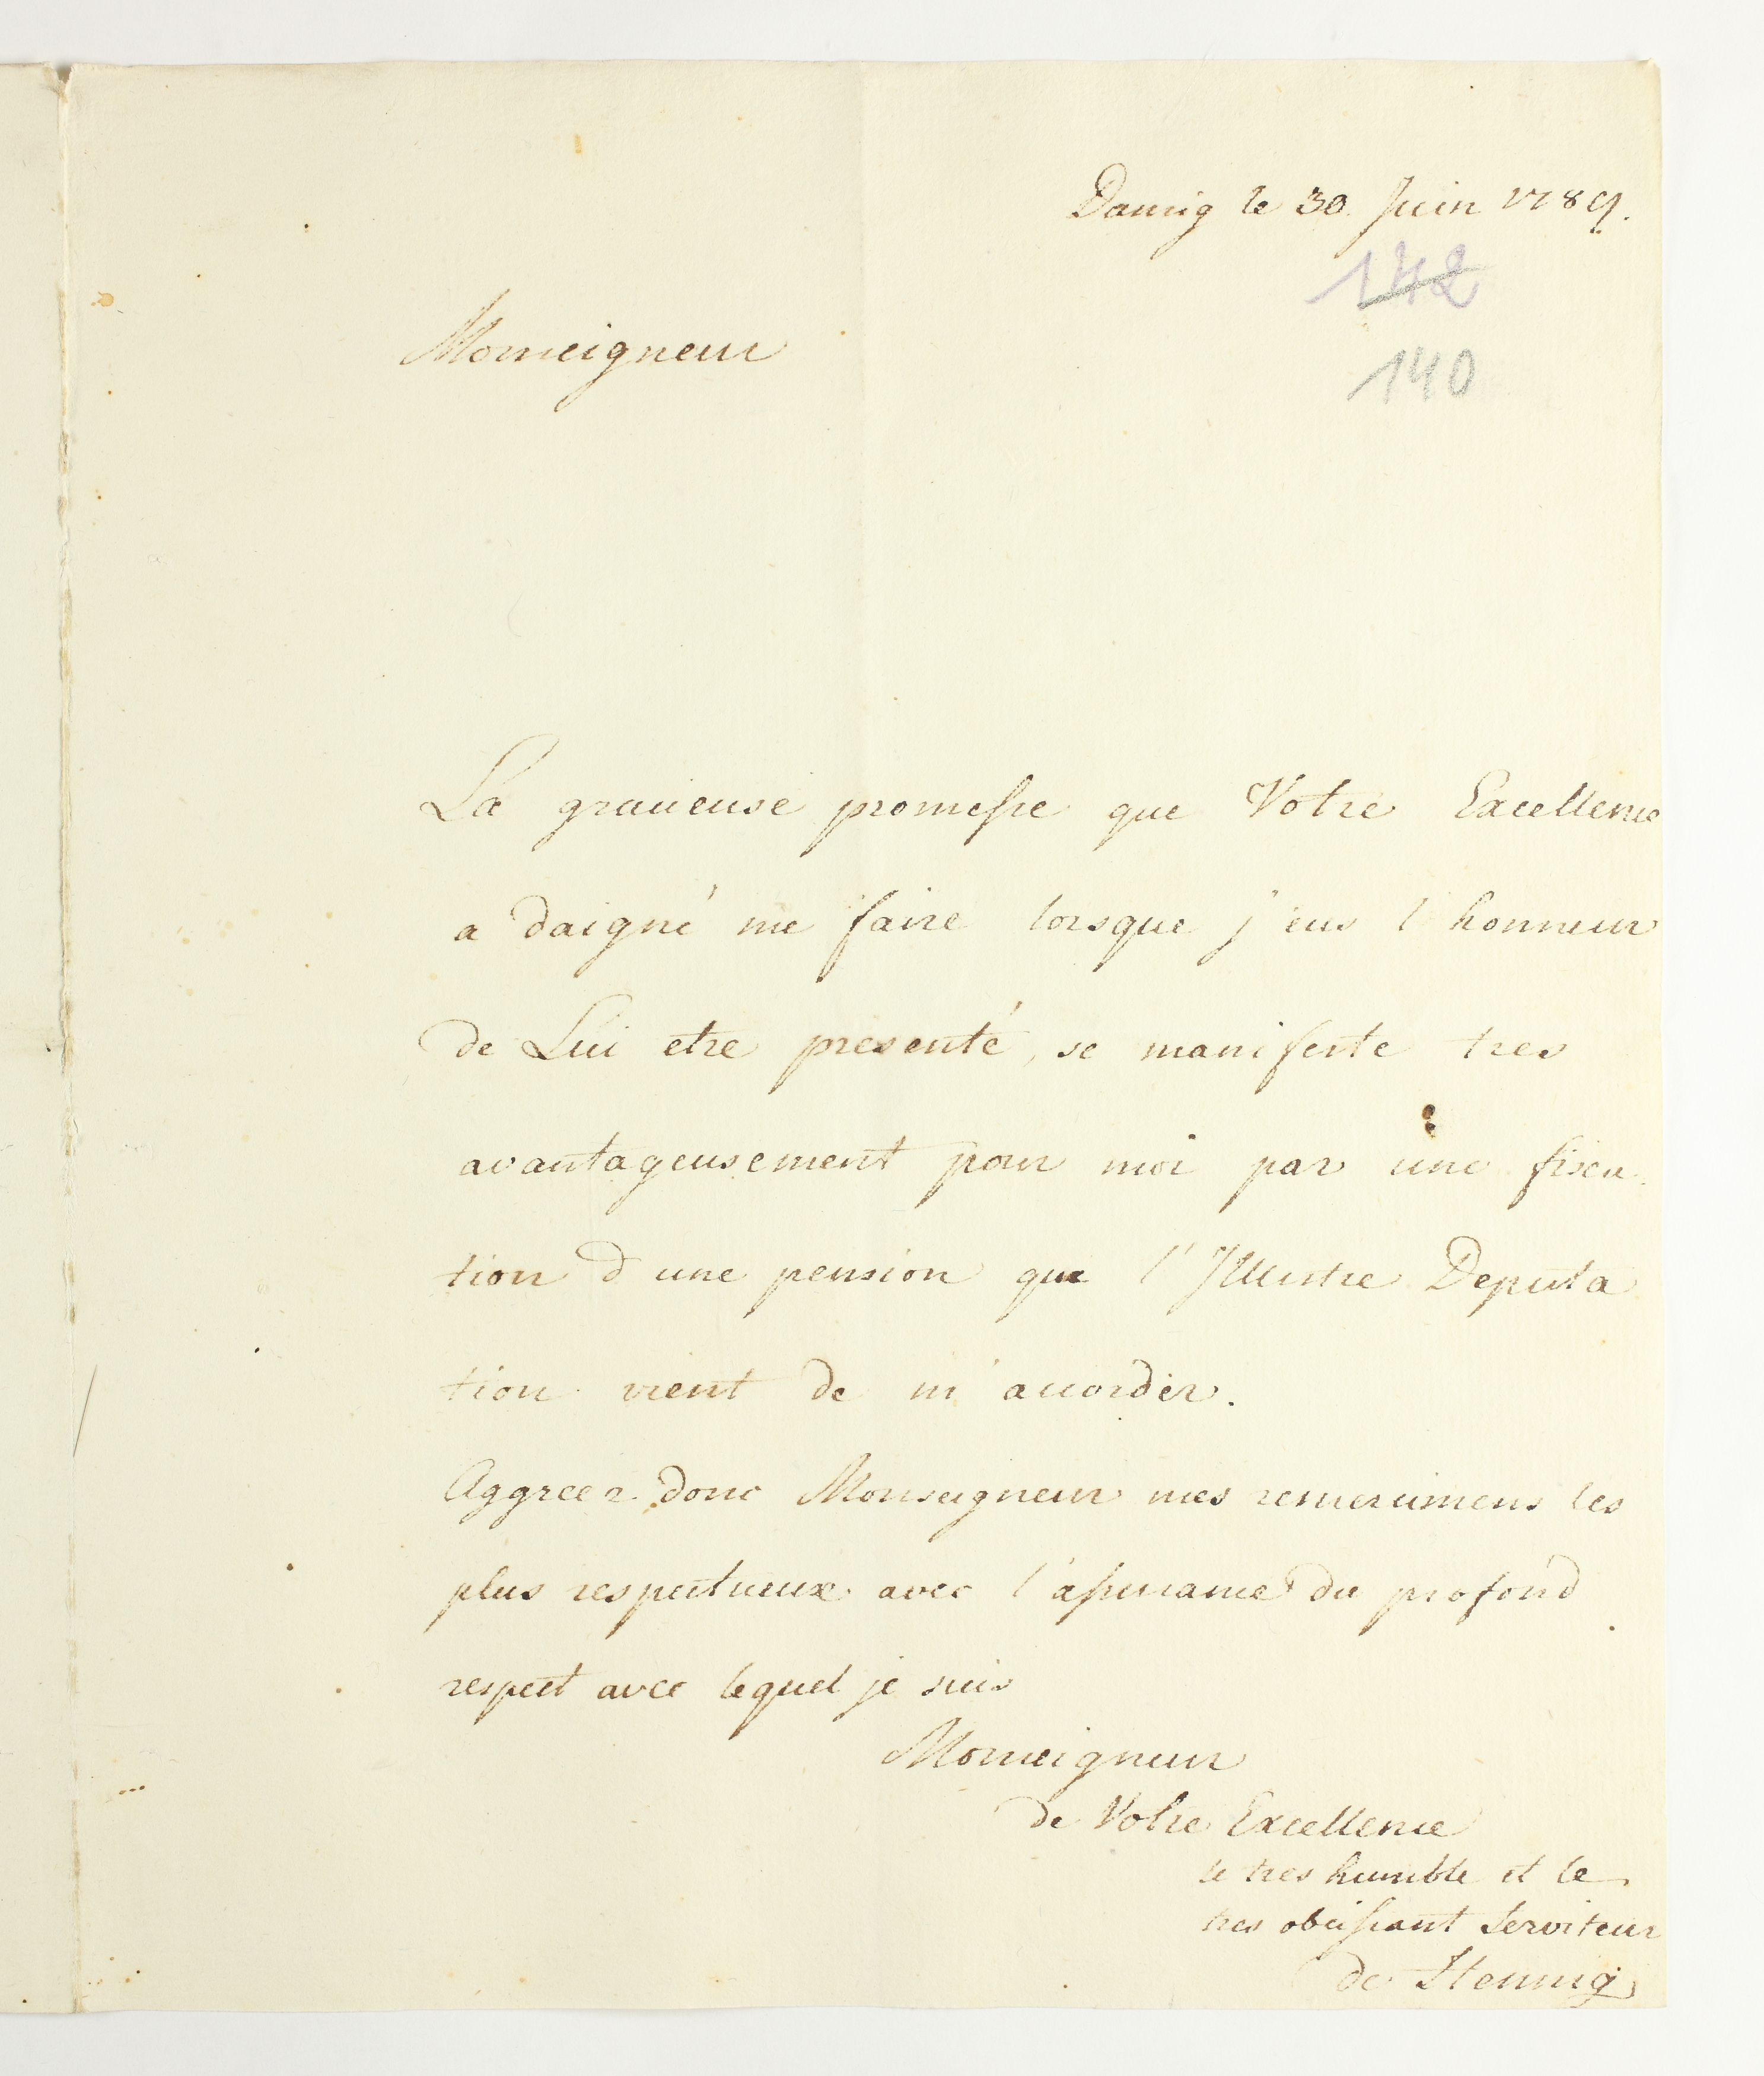 Danzig le 30. Juin 1789.
142
140
Monseigneur
La gracieuse promesse que Votre Excellence
a daigné me faire lorsque j'eus l'honneur
de Lui etre presenté, se manifeste tres
avantageusement pour moi par une fixa-
tion d'une pension que l'Illustre Deputa
tion vient de m'accorder.
Aggreez donc Monseigneur mes remercimens les
plus respectueux avec l'assurance du profond
respect avec lequel je suis
Monseigneur
de Votre Excellence
le tres humble et le
tres obeissant Serviteur
de Hennig